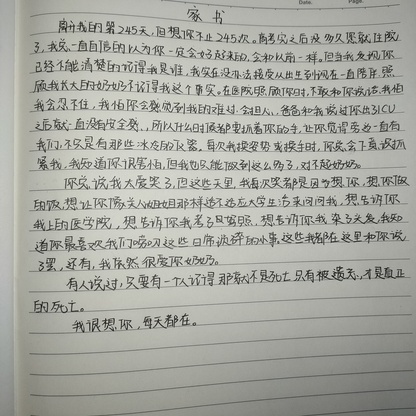 家书
离开我的第245天,但想你不止245次。高考完之后没多久您就住院
了,我总一直自信的认为你一定会好起来的,会和以前一样。但当我发现你
已经不能清楚的记得我是谁,我实在没办法接受从出生到现在一直陪伴、照
顾我长大的奶奶不记得我这个事实。在医院照顾你时,不敢和你谈话,我怕
我会忍不住,我怕你会感觉到我的难过。爸爸和我说过你出ICU
之后就一直没有安全感,所以什么时候都要抓着你的手,让你觉得旁边一直有
我们,不只是有那些冰冷的仪器,每次我换姿势或换手时,你总会下意识抓
紧我,我知道你很害怕,但我也只能做到这么多了,对不起奶奶。
你总说我大爱笑了,但这些天里,我每次哭都是因为想你,想你做
的饭,想让你像关心姐姐那样适不适应大学生活来问问我,想告诉你我
考上的医学院,想告诉你我
道你最喜欢我们唠叨这些日常琐碎的小事,这些我都在这里和你说
了罢,还有,我依然很爱你奶奶。
有人说过,只要有一个人记得那就不是死亡,只有被遗忘,才是真正
的死亡。
我很想你,每天都在。